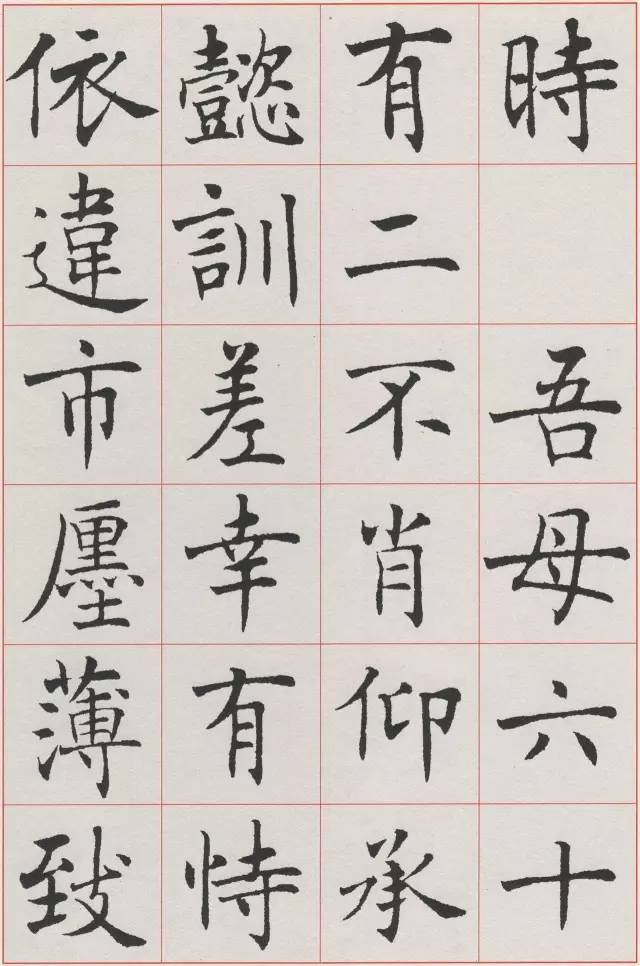 時 吾母六十
有二不肖仰承
懿訓差幸有恃
依違市廛薄致